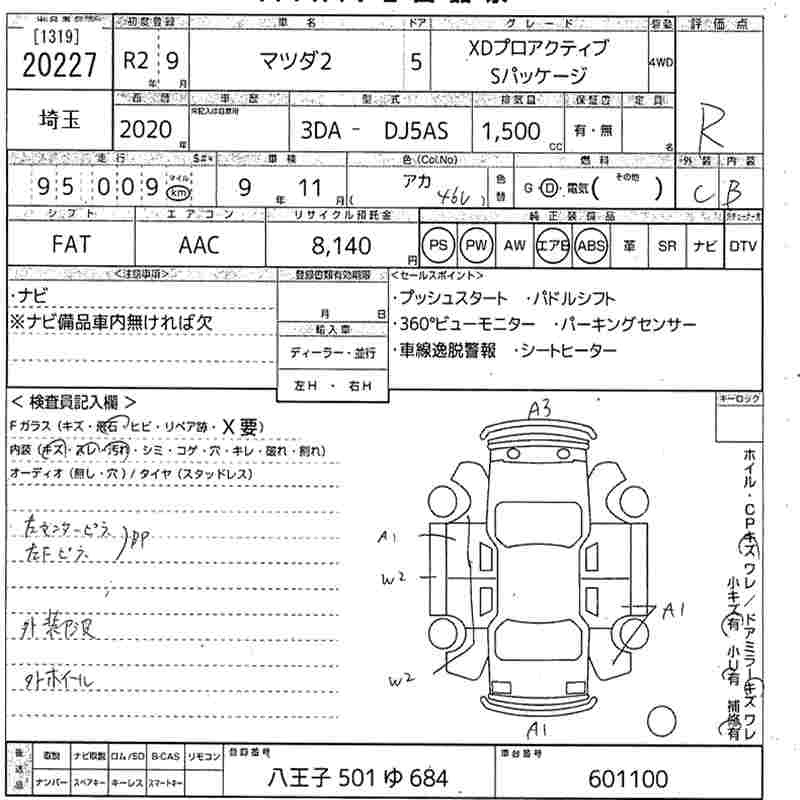 初度登録 車名 ドア グレード 装型 評価点
[1319]
20227
R2 年 9 月
マツダ2
5
XDプロアクティブ
Sパッケージ
4WD
R
埼玉
西暦 車歴 型式 排気量 保証書 定員
2020 年
3DA - DJ5AS
1,500 CC
有・無
名
走行 車検 色(Col.No) 燃料 外装 内装
95,009 マイル km
9 年 11 月
アカ
( 46V )
色替
G・D・電気( その他 )
C B
シフト エアコン リサイクル預託金 純正装備品
FAT AAC 8,140 円 PS PW AW エアB ABS 革 SR ナビ DTV
<注意事項> 登録書類有効期限 <セールスポイント>
・ナビ
※ナビ備品車内無ければ欠
月 日
輸入車
ディーラー・並行
左H ・ 右H
・プッシュスタート ・パドルシフト
・360°ビューモニター ・パーキングセンサー
・車線逸脱警報 ・シートヒーター
キーロック
< 検査員記入欄 >
Fガラス (キズ・飛石・ヒビ・リペア跡・X要)
内装 (キズ・スレ・汚れ・シミ・コゲ・穴・キレ・破れ・割れ)
オーディオ (無し・穴) / タイヤ (スタッドレス)
左センターピラ
左Fピラ
)BP
外装
外ホイール
A3
A1
W2
A1
W2
A1
ホイル・CPキズ ワレ / ドアミラーキズ ワレ
小キズ有 小U有 補修有
後送品
取説 ナビ取説 ロム/SD B-CAS リモコン
ナンバー スペアキー キーレス スマートキー
登録番号
八王子 501 ゆ 684
車台番号
601100